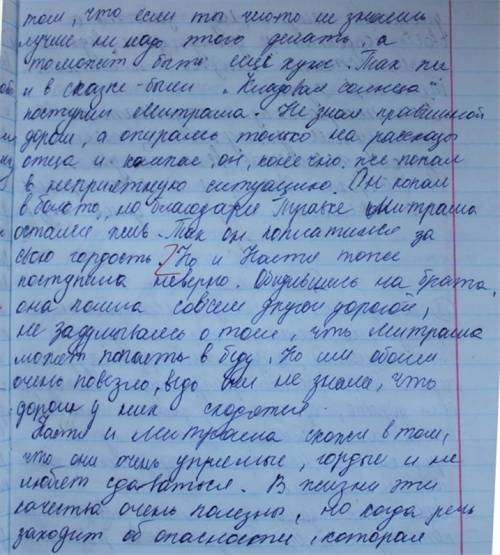 том, что если ты что-то не знаешь
лучше не надо этого делать, а
то может быть ещё хуже. Так же
и в сказке-были „Кладовая солнца"
поступил Митраша. Не зная правильной
дороги, а опираясь только на рассказы
отца и компас, он, конечно же попал
в неприятную ситуацию. Он попал
в болото, но благодаря Травке Митраша
остался жив. Так он поплатился за
свою гордость. Но и Настя тоже
поступила неверно. Обидевшись на брата,
она пошла совсем другой дорогой,
не задумываясь о том, что Митраша
может попасть в беду. Но им обоим
очень повезло, ведь они не знали, что
дороги у них сходятся.
Настя и Митраша схожи в том,
что они очень упрямые, гордые и не
любят сдаваться. В жизни эти
качества очень полезны, но когда речь
заходит об опасности, которая